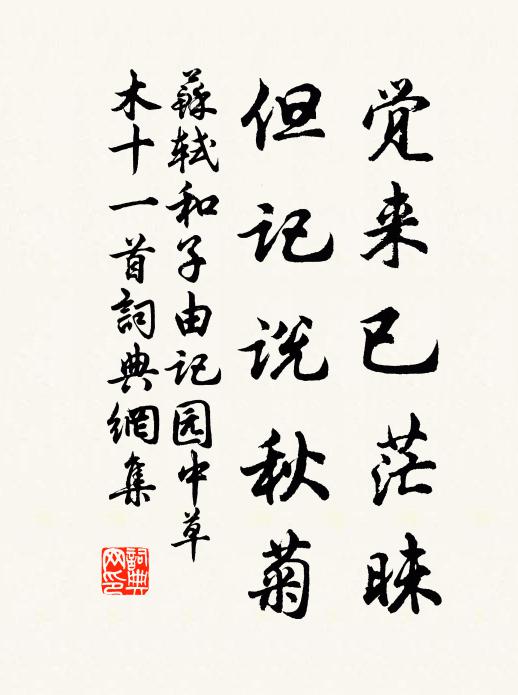 觉来已茫昧
但记说秋菊
蘇轼和子由记园中草
木十一首詞典網集
詞典
网印